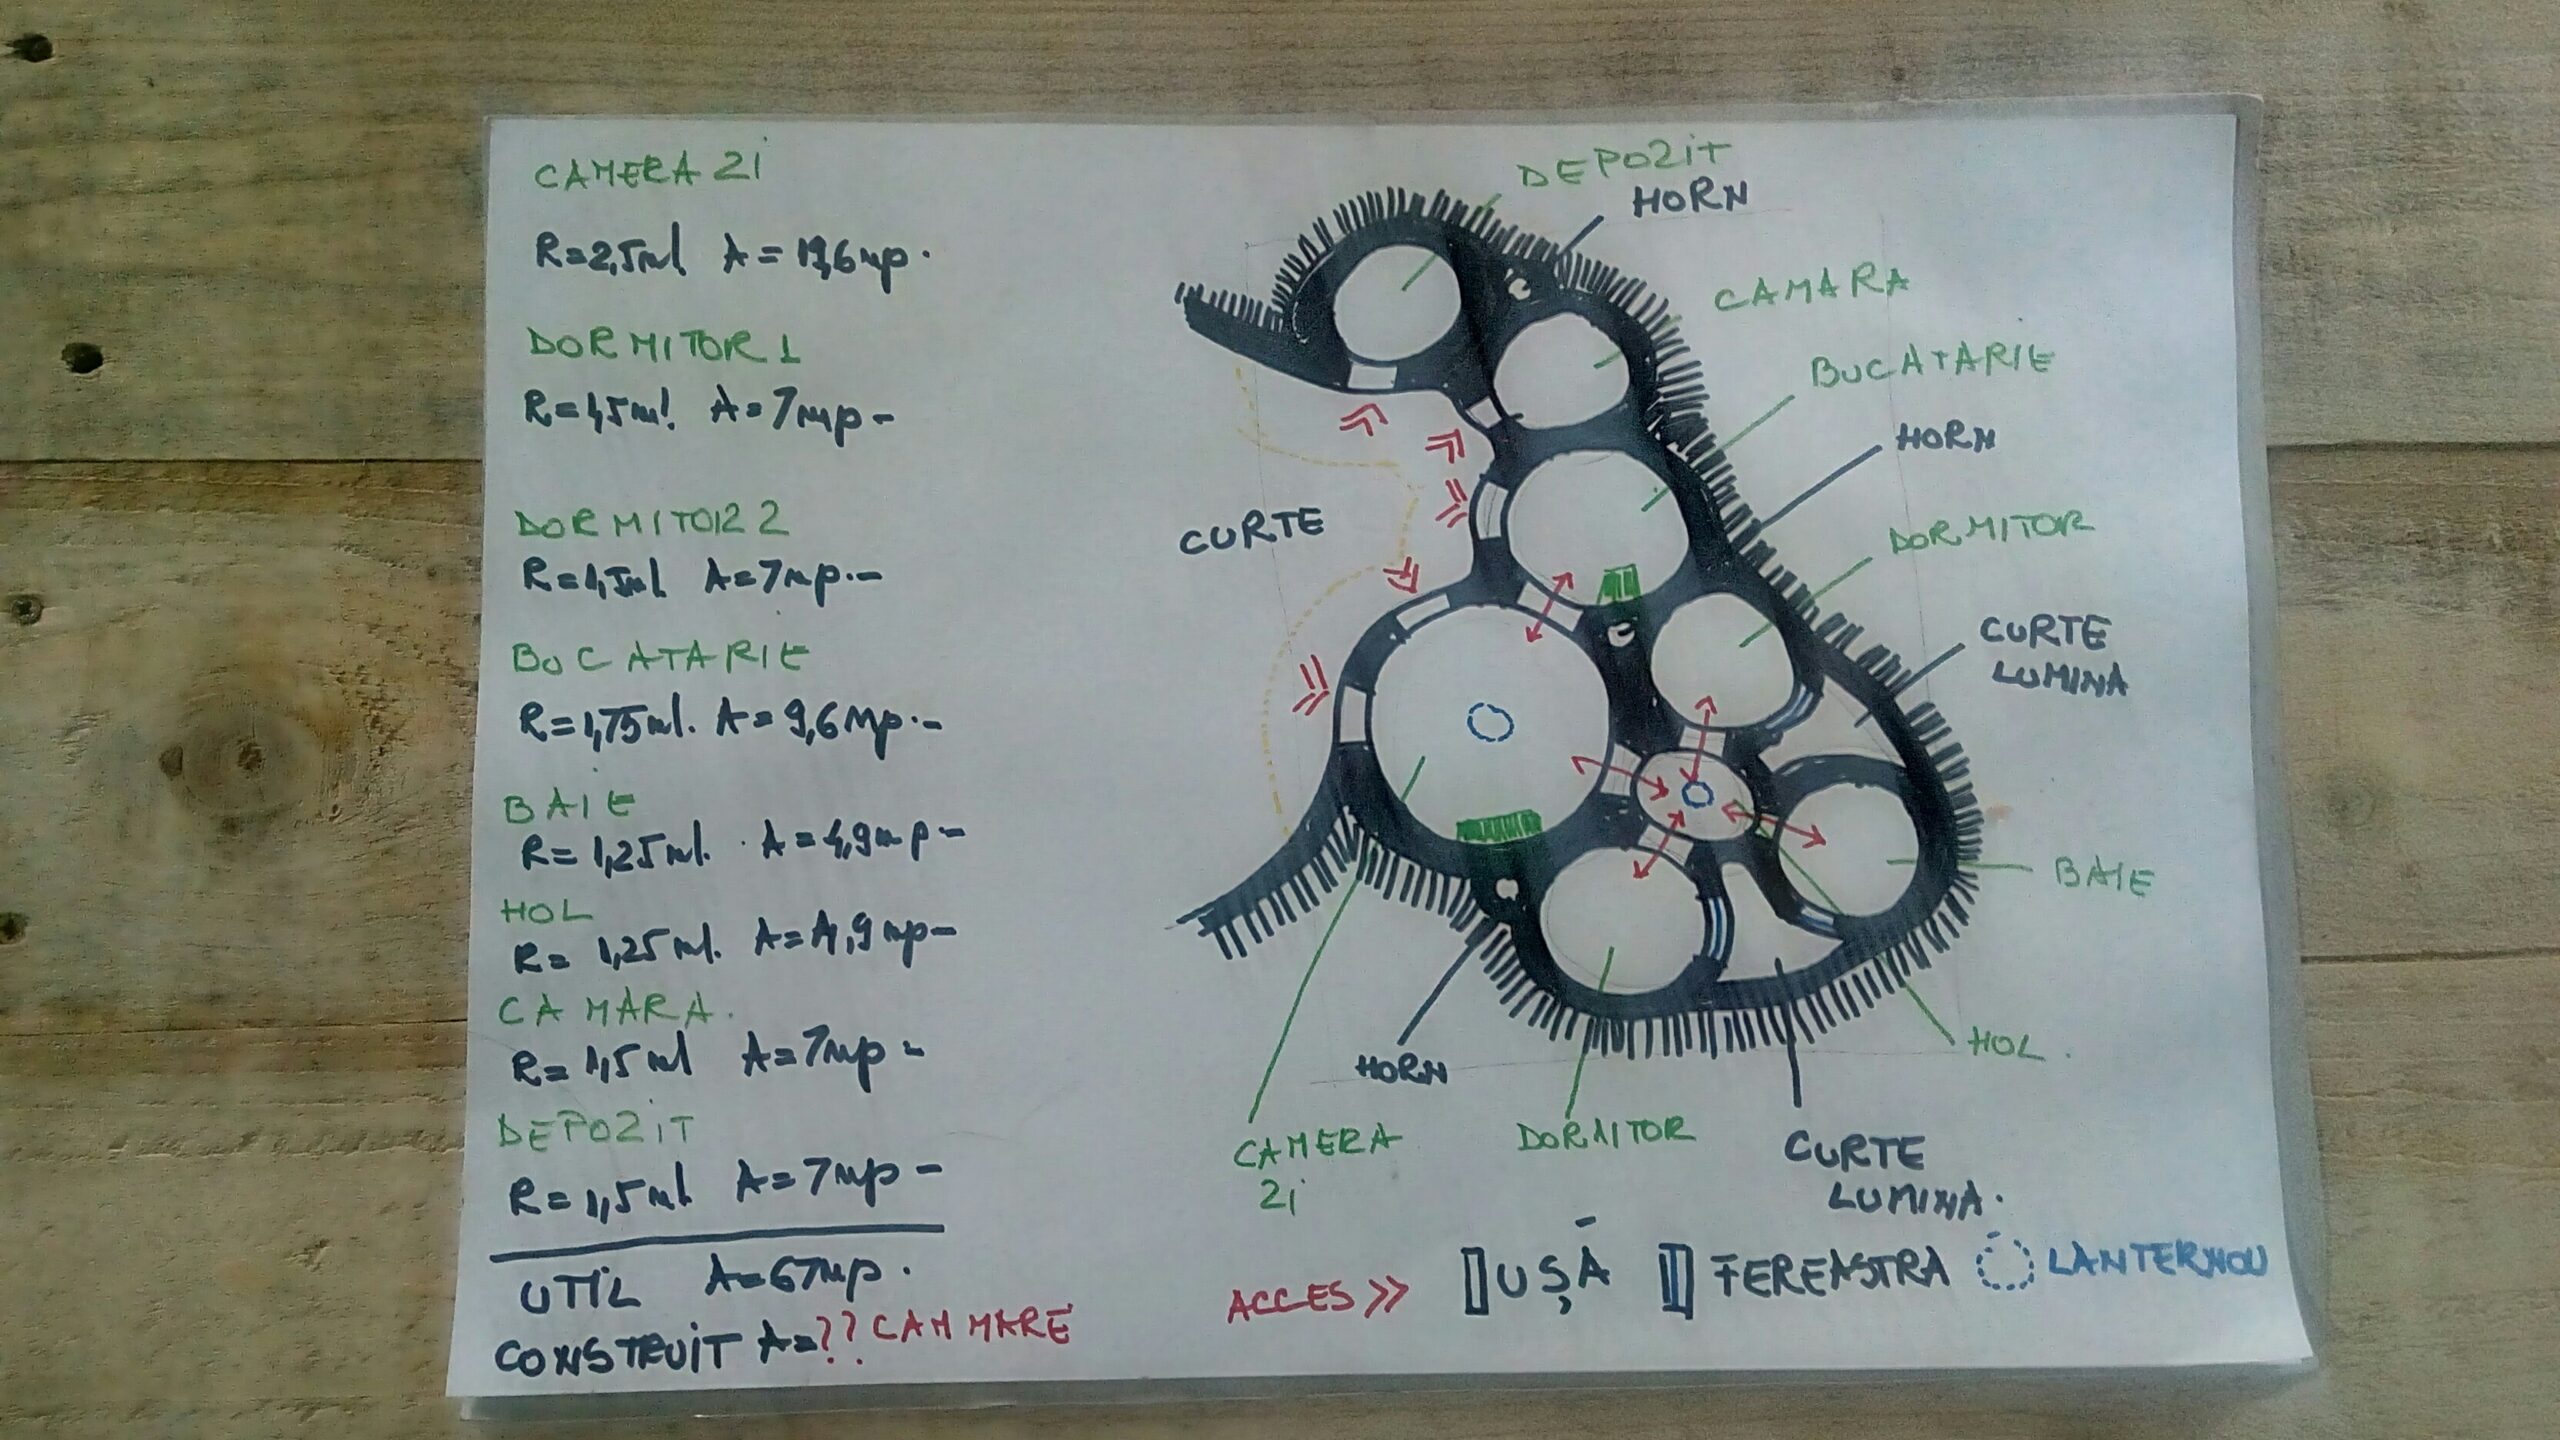 CAMERA ZI
R=2,5ml A=19,6mp.
DORMITOR 1
R=1,5ml. A=7mp-
DORMITOR 2
R=1,5ml A=7mp.-
BUCATARIE
R=1,75ml. A=9,6mp.-
BAIE
R=1,25ml. A=4,9mp-
HOL
R=1,25ml. A=4,9mp-
CAMARA.
R=1,5ml A=7mp-
DEPOZIT
R=1,5ml A=7mp-
UTIL A=67mp.
CONSTRUIT A=?? CAM MARE
DEPOZIT
HORN
CAMARA
BUCATARIE
HORN
DORMITOR
CURTE
CURTE
LUMINA
BAIE
HOL.
HORN
CAMERA
ZI
DORMITOR
CURTE
LUMINA.
ACCES >> UȘĂ FEREASTRA LANTERNOU